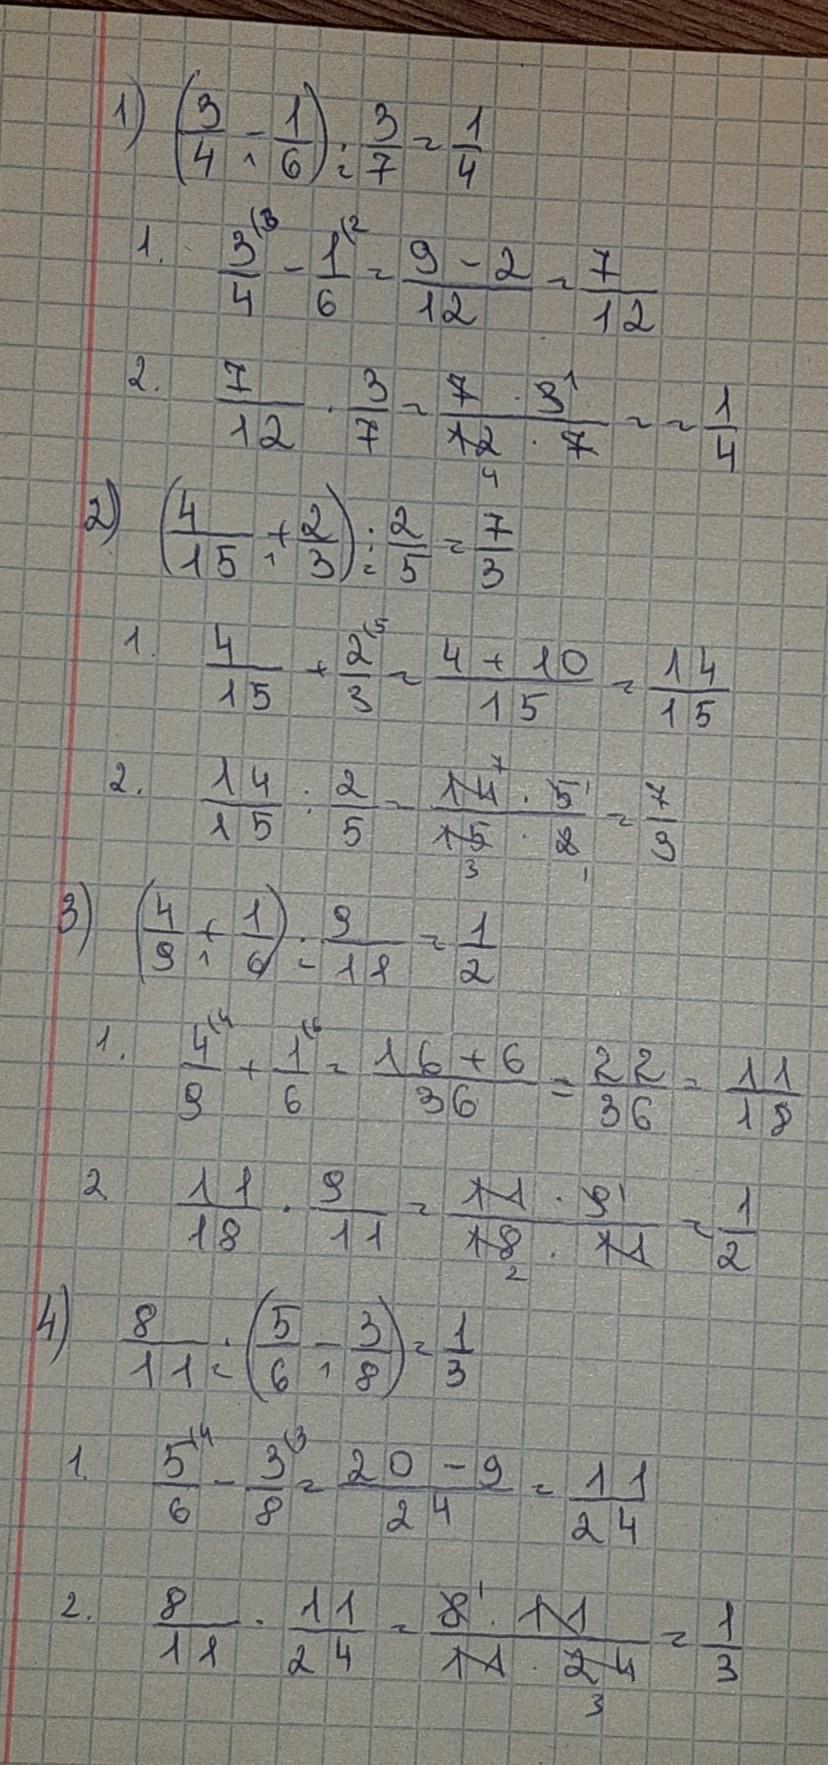 1) (3/4 - 1/6) · 3/7 = 1/4
1. 3/4 (3 - 1/6 (2 = 9 - 2/12 = 7/12
2. 7/12 · 3/7 = 7 · 3 1/12 4 · 7 = = 1/4
2) (4/15 + 2/3) : 2/5 = 7/3
1. 4/15 + 2/3 (5 = 4 + 10/15 = 14/15
2. 14/15 : 2/5 = 14 7 · 5 1/15 3 · 2 1 = 7/3
3) (4/9 + 1/6) · 9/11 = 1/2
1. 4/9 (4 + 1/6 (6 = 16 + 6/36 = 22/36 = 11/18
2. 11/18 · 9/11 = 11 · 9 1/18 2 · 11 = 1/2
4) 8/11 · (5/6 - 3/8) = 1/3
1. 5/6 (4 - 3/8 (3 = 20 - 9/24 = 11/24
2. 8/11 · 11/24 = 8 1 · 11/11 · 24 3 = 1/3